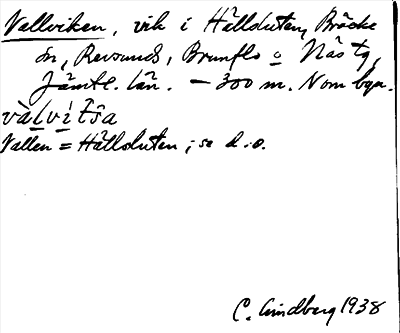 Vallviken, vik i Hällsluten, Bräcke
sn, Revsunds, Brunflo o Näs tg,
Jämtl. län. – 300 m. Nom bgn.
Vallen = Hällsluten ; se d. o.
C. Lindberg 1938